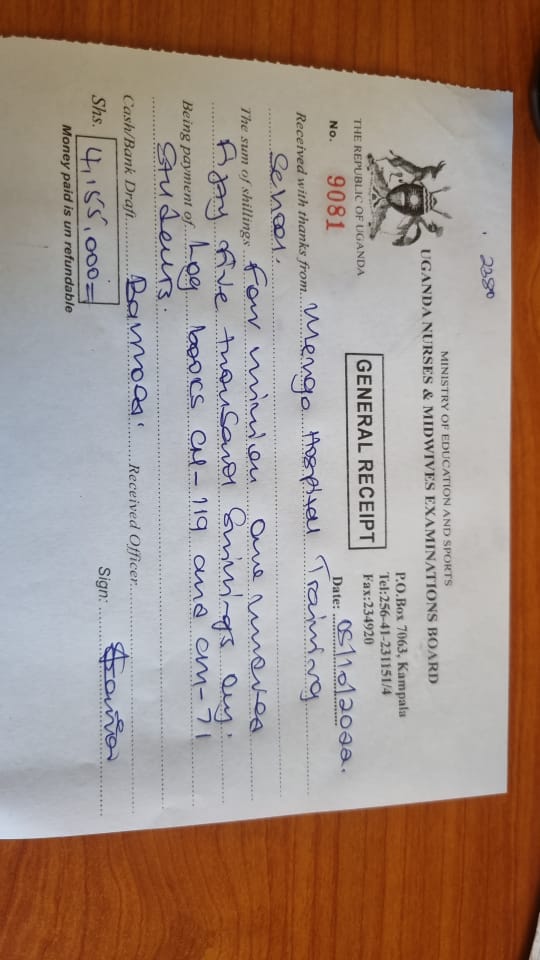 2280
MINISTRY OF EDUCATION AND SPORTS
UGANDA NURSES & MIDWIVES EXAMINATIONS BOARD
P.O.Box 7063, Kampala
Tel:256-41-231151/4
Fax:234920
THE REPUBLIC OF UGANDA
GENERAL RECEIPT
No. 9081
Date: 05/10/2022.
Received with thanks from Mengo Hospital Training
School.
The sum of shillings Four million one hundred
fifty five thousand Shillings only.
Being payment of Log books CN-119 and CM-71
Students.
Cash/Bank Draft Received Officer
Shs. 4,155,000= Sign:
Money paid is un refundable